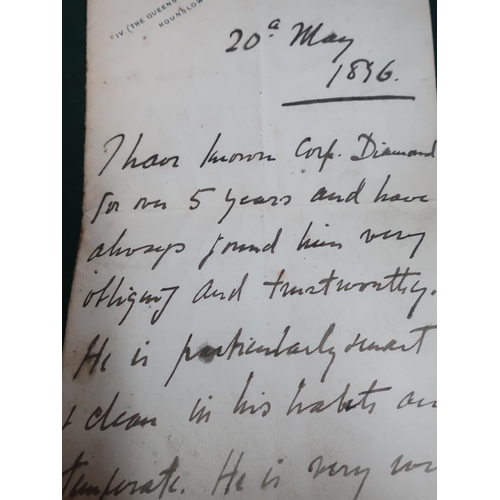 IV. (THE QUEEN'S
HOUNSLOW
20a May
1896.
I have known Corp. Diamond
for over 5 years and have
always found him very
obliging and trustworthy.
He is particularly smart
& clean in his habits an
temperate. He is very